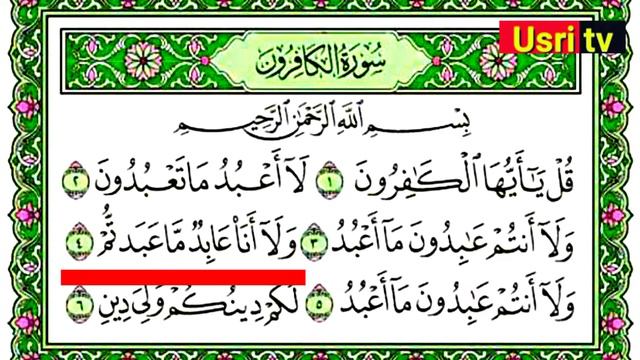 Usri tv
سُورَةُ الْكَافِرُونَ
بِسْمِ اللَّهِ الرَّحْمَٰنِ الرَّحِيمِ
قُلْ يَا أَيُّهَا الْكَافِرُونَ ١ لَا أَعْبُدُ مَا تَعْبُدُونَ ٢
وَلَا أَنتُمْ عَابِدُونَ مَا أَعْبُدُ ٣ وَلَا أَنَا عَابِدٌ مَّا عَبَدتُّمْ ٤
وَلَا أَنتُمْ عَابِدُونَ مَا أَعْبُدُ ٥ لَكُمْ دِينُكُمْ وَلِيَ دِينِ ٦